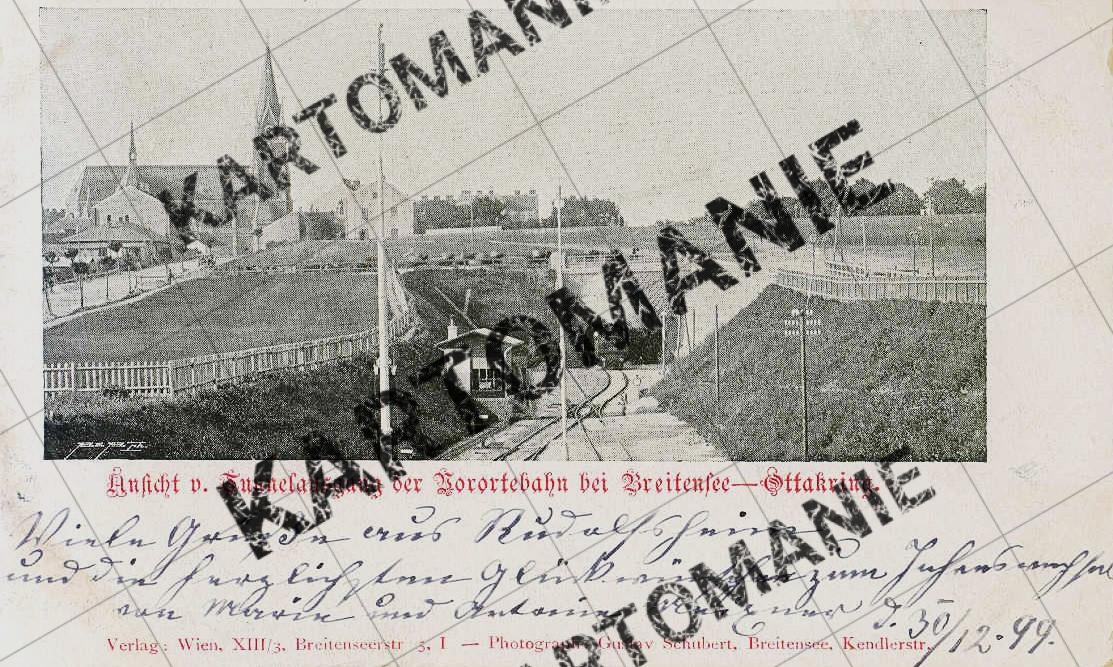 KARTOMANIE
KARTOMANIE
KARTOMANIE
Ansicht v. Tunnelausgang der Vorortebahn bei Breitensee—Ottakring.
Viele Grüße aus Rudolfsheim
und die herzlichsten Glückwünsche zum Jahreswechsel
von Marie und Antonie d. 30/12.99.
Verlag: Wien, XIII/3, Breitenseerstr 5, I — Photograph: Gustav Schubert, Breitensee, Kendlerstr.